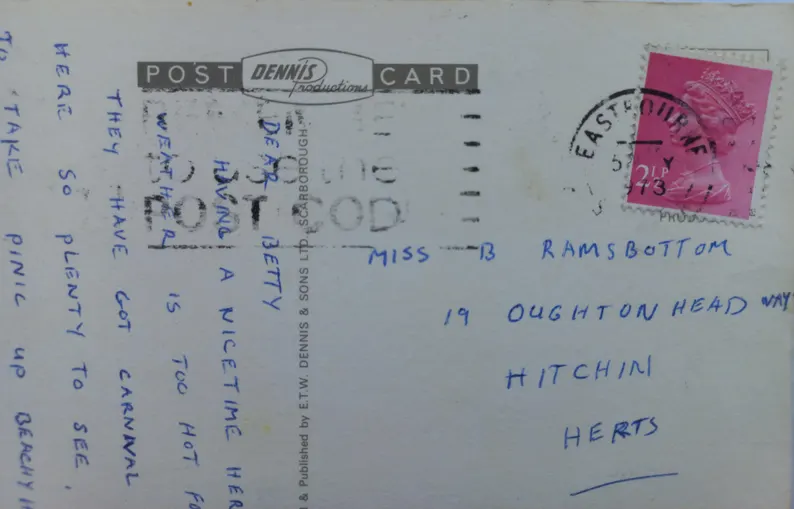 POST CARD
DENNIS
Productions
POST COD
EASTBOURNE
2½P
& Published by E.T.W. DENNIS & SONS LTD., SCARBOROUGH.
DEAR BETTY
HAVING A NICETIME HER
WEATHER IS TOO HOT FO
THEY HAVE GOT CARNIVAL
HERE SO PLENTY TO SEE,
TO TAKE PINIC UP BEACHY
MISS B RAMSBOTTOM
19 OUGHTON HEAD WAY
HITCHIN
HERTS